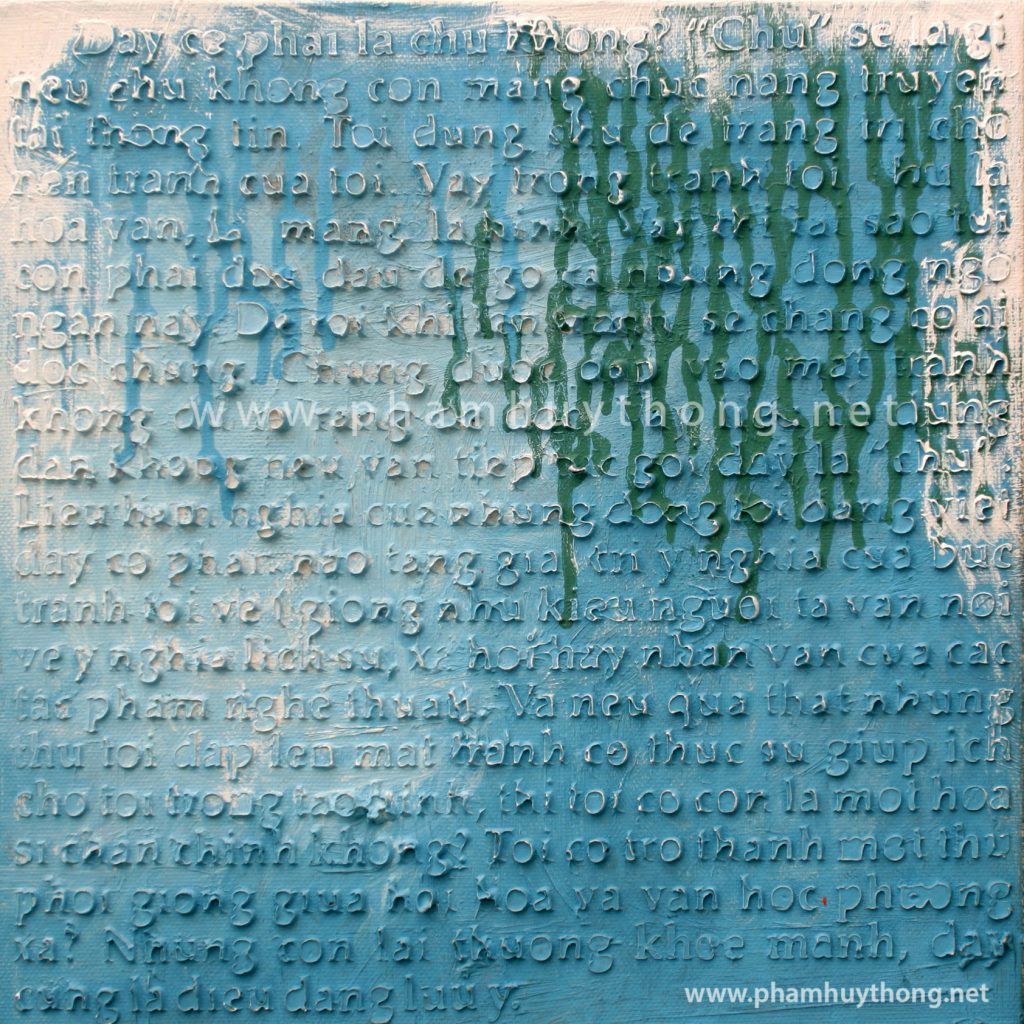 Day co phai la chu khong? "Chu" se la gi
neu chu khong con mang chuc nang truyen
tai thong tin. Toi dung chu de trang tri cho
nen tranh cua toi. Vay trong tranh toi, chu la
hoa van, la mang, la hinh. Vay thi tai sao toi
con phai dau dau de go ra nhung dong ngo
ngan nay. De roi khi len tranh, se chang co ai
doc chang. Chung duoc dap vao mat tranh
khong dau
www.phamhuythong.net
dung
dan khong neu van tiep tuc goi day la "chu".
Lieu ham nghia cua nhung dong toi dang viet
day co phan nao tang gia tri y nghia cua buc
tranh toi ve (giong nhu kieu nguoi ta van noi
ve y nghia lich su, xa hoi hay nhan van cua cac
tac pham nghe thuat). Va neu qua that nhung
thu toi dap len mat tranh co thuc su giup ich
cho toi trong tao hinh, thi toi co con la mot hoa
si chan chinh khong? Toi co tro thanh mot thu
phoi giong giua hoi hoa va van hoc phuong
xa? Nhung con lai thuong khoe manh, day
cung la dieu dang luu y.
www.phamhuythong.net